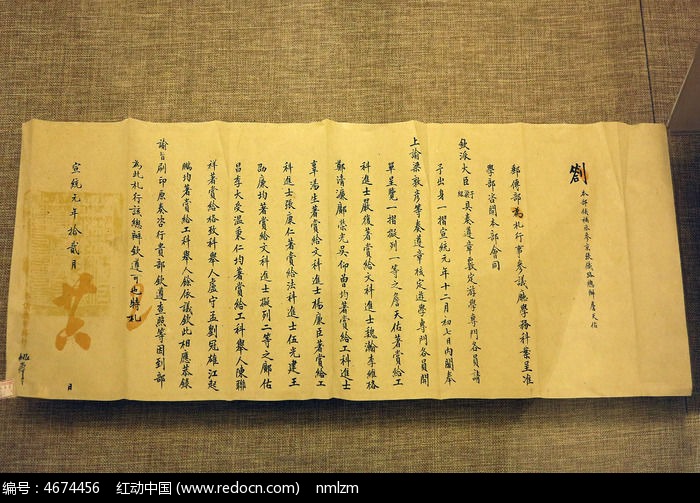 劄
本部候補丞參京張鐵路總辦詹天佑
郵傳部為札行事參議廳學務科案呈准
學部咨開本部會同
欽派大臣具奏遵章覈定游學專門各員請
予出身一摺宣統元年十二月初七日內閣奉
上諭梁敦彥等奏遵章核定遊學專門各員開
單呈覽一摺擬列一等之詹天佑著賞給工
科進士嚴復著賞給文科進士魏瀚李維格
鄭清濂鄺榮光吳仰曾均著賞給工科進士
辜湯生著賞給文科進士楊廉臣著賞給工
科進士張康仁著賞給法科進士伍光建王
劭廉均著賞給文科進士擬列二等之鄺佑
昌李大受溫秉仁均著賞給工科舉人陳聯
祥著賞給格致科舉人盧守孟劉冠雄江起
鵬均著賞給工科舉人餘依議欽此相應恭錄
諭旨刷印原奏咨行貴部欽遵查照等因到部
為此札行該總辦欽遵可也特札
宣統元年拾貳月
日
编号：4674456 红动中国 (www.redocn.com) nmlzm